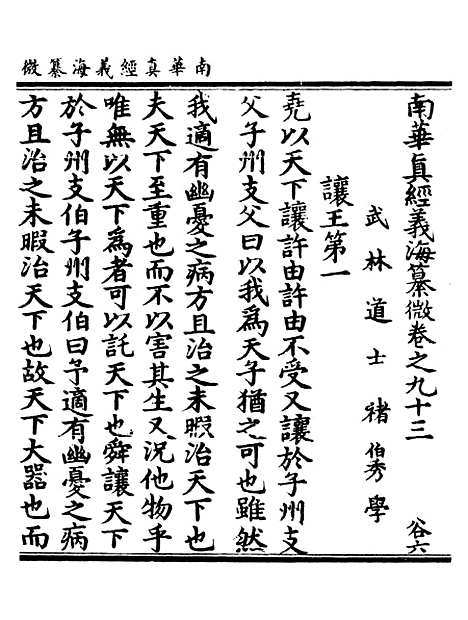 南華真經義海纂微
南華真經義海纂微卷之九十三 谷六
武林道士褚伯秀學
讓王第一
堯以天下讓許由許由不受又讓於子州支
父子州支父曰以我爲天子猶之可也雖然
我適有幽憂之病方且治之未暇治天下也
夫天下至重也而不以害其生又況他物乎
唯無以天下爲者可以託天下也舜讓天下
於子州支伯子州支伯曰予適有幽憂之病
方且治之未暇治天下也故天下大器也而